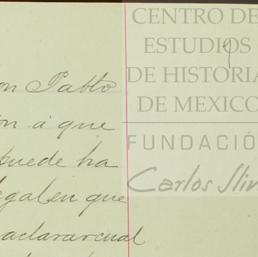 CENTRO DE
ESTUDIOS
DE HISTORIA
DE MEXICO
FUNDACIÓ
Carlos Slim
on Pablo
ón á que
puede ha
legal en que
aclarar cual